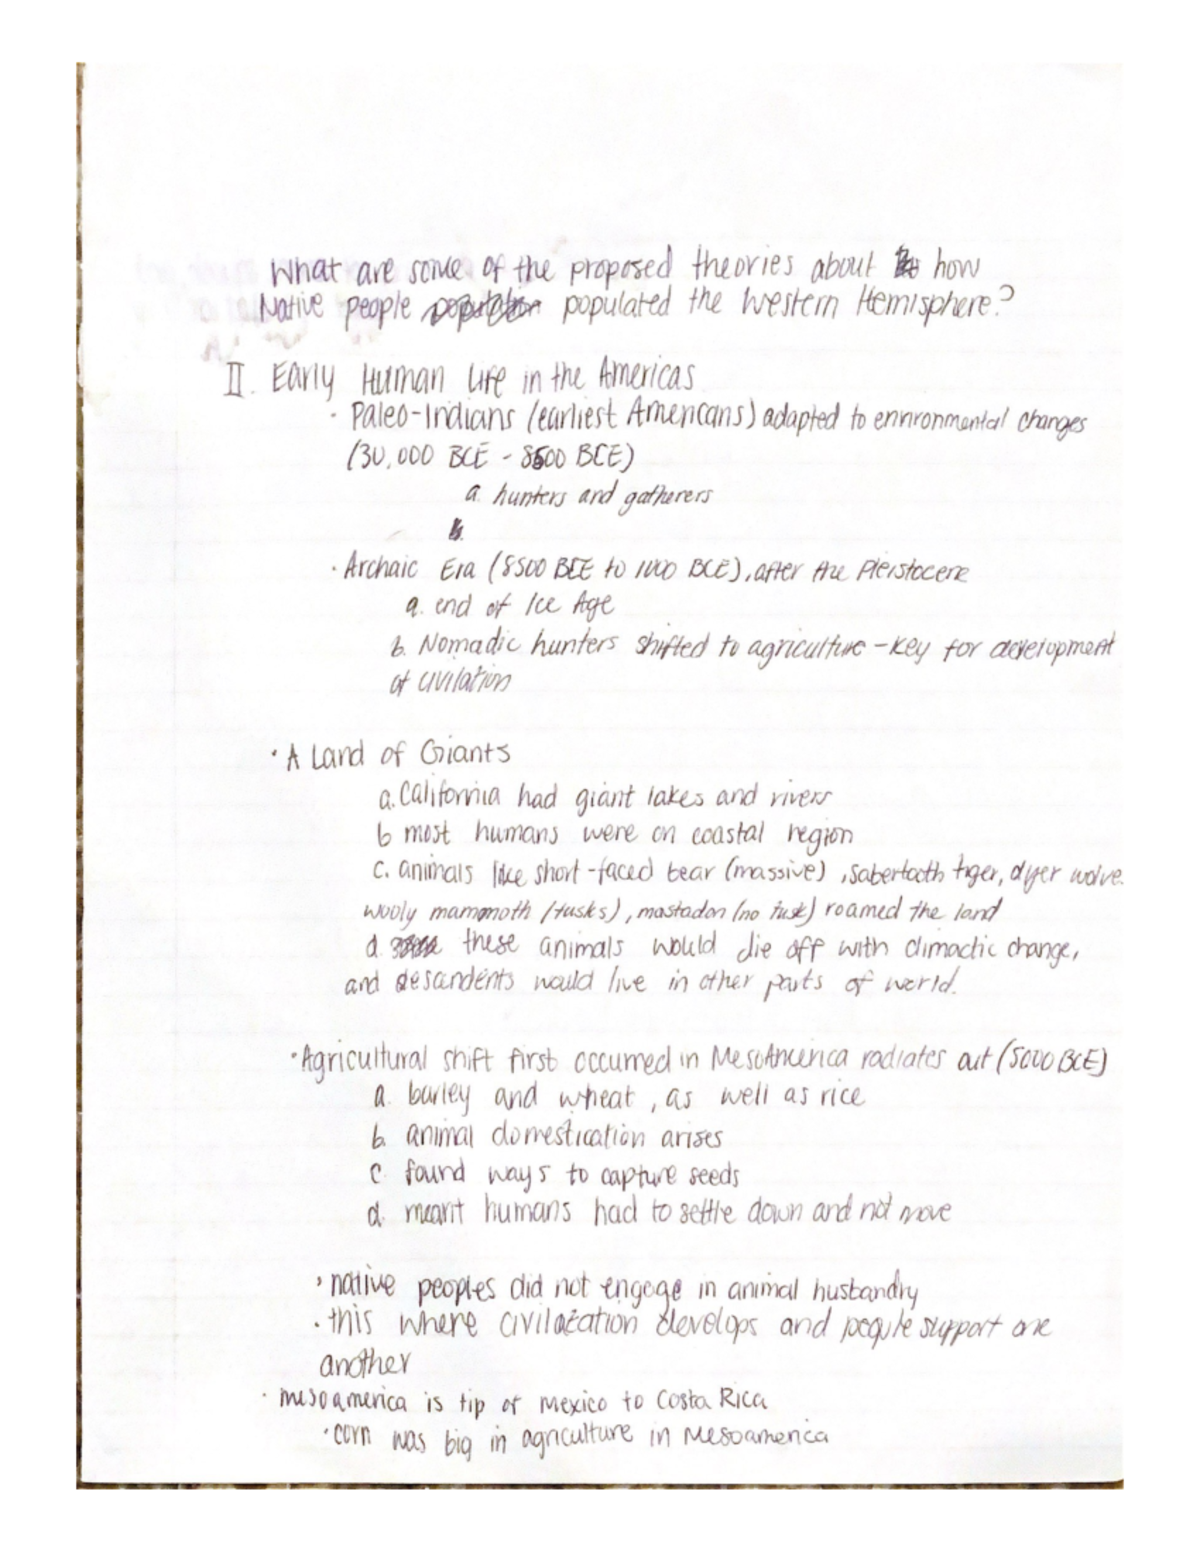 What are some of the proposed theories about how
Native people populated the Western Hemisphere?
II. Early Human Life in the Americas
· Paleo-Indians (earliest Americans) adapted to environmental changes
(30,000 BCE - 8500 BCE)
a. hunters and gatherers
b.
· Archaic Era (8500 BCE to 1000 BCE), after the Pleistocene
a. end of Ice Age
b. Nomadic hunters shifted to agriculture - key for development
of civilation
· A Land of Giants
a. California had giant lakes and rivers
b most humans were on coastal region
c. animals like short-faced bear (massive), sabertooth tiger, dyer wolve
wooly mammoth (tusks), mastadon (no tusk) roamed the land
d. these animals would die off with climactic change,
and descendents would live in other parts of world.
· Agricultural shift first occurred in MesoAmerica radiates out (5000 BCE)
a. barley and wheat, as well as rice
b. animal domestication arises
c. found ways to capture seeds
d. meant humans had to settle down and not move
· native peoples did not engage in animal husbandry
· this where civilazation develops and people support one
another
· mesoamerica is tip of Mexico to Costa Rica
· corn was big in agriculture in Mesoamerica